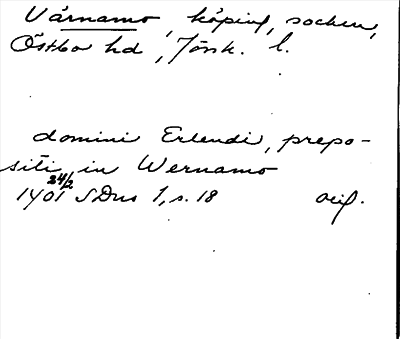 Värnamo, köping, socken,
Östbo hd, Jönk. l.
domini Erlendi, prepo-
siti in Wernamo
1401 24/2 SDns 1, s. 18 orig.